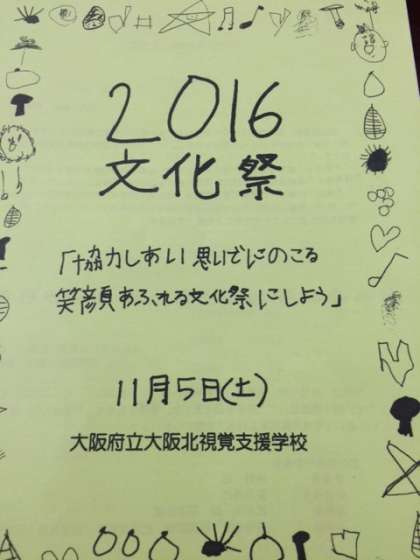 2016
文化祭
「協力しあい思いでにのこる
笑顔あふれる文化祭にしよう」
11月5日(土)
大阪府立大阪北視覚支援学校